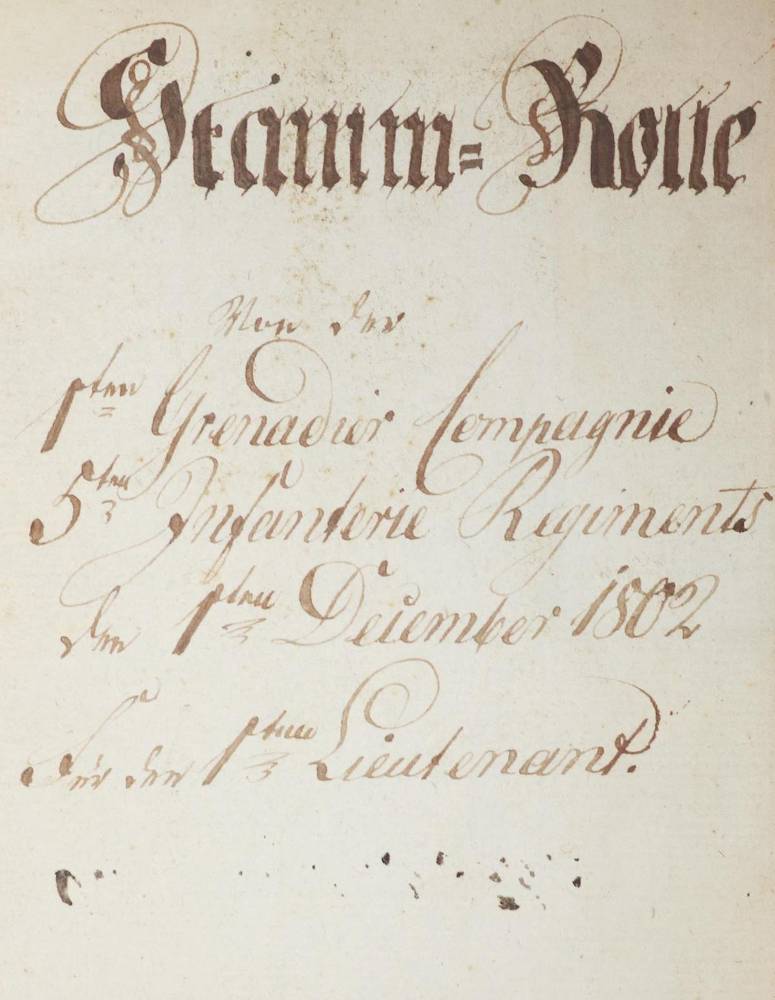 Stamm=Rolle
Von der
1ten Grenadier Compagnie
5ten Infanterie Regiments
den 1ten December 1802
Für den 1ten Lieutenant.